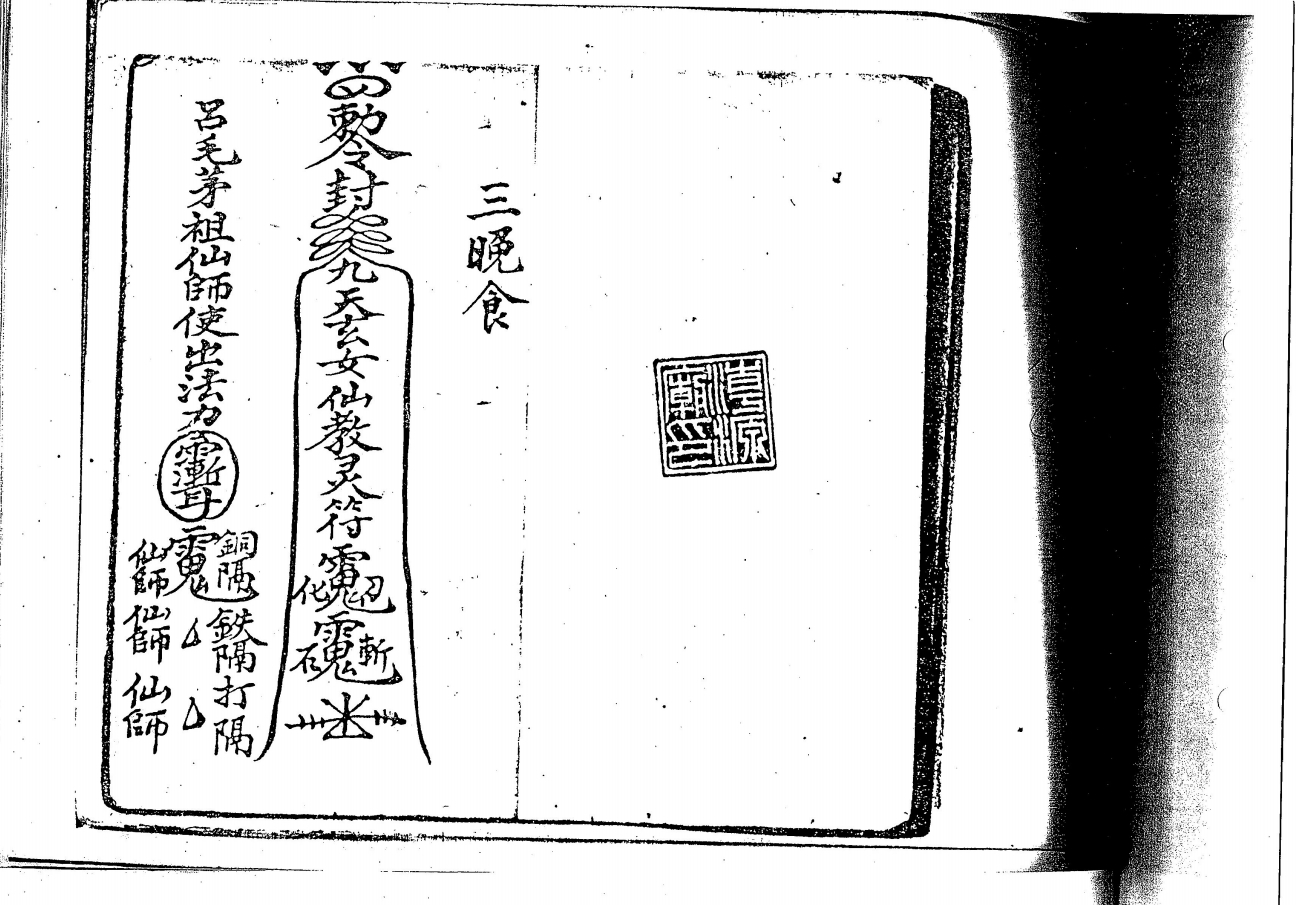 清源
廟印
三晚食
勅令封九天玄女仙教灵符
化
石斬
呂毛茅祖仙師使出法力
銅隔鉄隔打隔
仙師仙師仙師